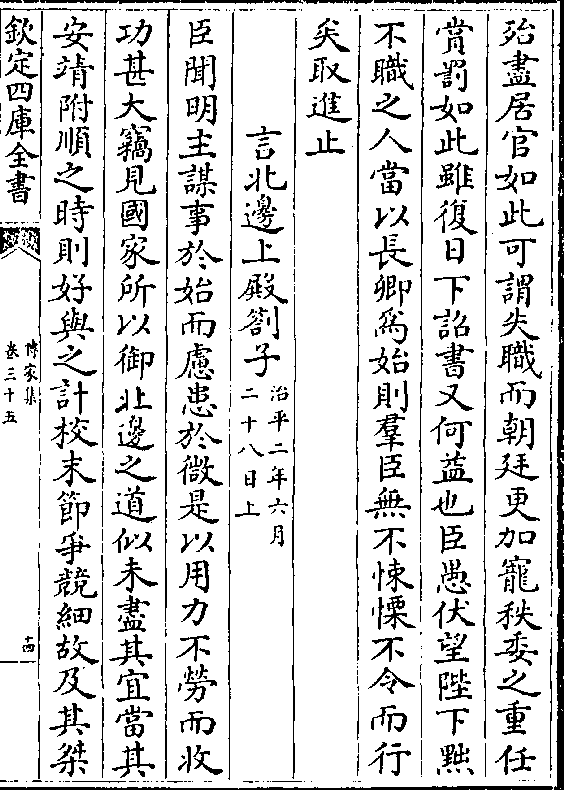 殆盡居官如此可謂失職而朝廷更加寵秩委之重任
賞罰如此雖復日下詔書又何益也臣愚伏望陛下黜
不職之人當以長卿為始則羣臣無不悚慄不令而行
矣取進止
言北邊上殿劄子治平二年六月二十八日上
臣聞明主謀事於始而慮患於微是以用力不勞而收
功甚大竊見國家所以御北邊之道似未盡其宜當其
安靖附順之時則好與之計校末節爭競細故及其桀
欽定四庫全書
傳家集
卷三十五
十四